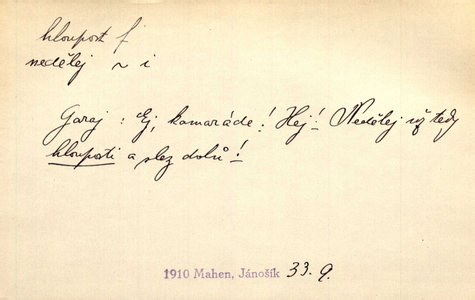 hloupost f
nedělej ~ i
Garaj : Ej, kamaráde! Hej! Nedělej už tedy
hlouposti a slez dolů!
1910 Mahen, Jánošík 33. 9.